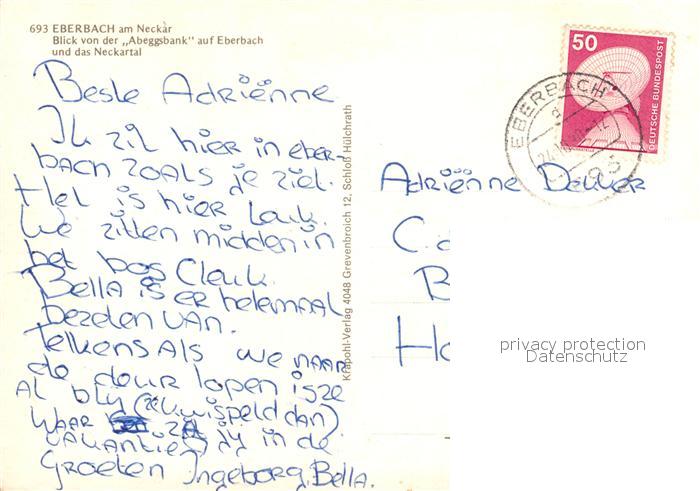 693 EBERBACH am Neckar
Blick von der „Abeggsbank" auf Eberbach
und das Neckartal
Beste Adriënne
Ik zit hier in eber-
bach zoals je ziet.
Het is hier Leuk.
We zitten midden in
het bos Leuk.
Bella is er helemaal
bezeten van.
Telkens als we naar
de deur lopen is ze
al bly (ze kwispeld dan)
Waar zit jy in de
vakantie
Groeten Ingeborg, Bella.
Krapohl-Verlag 4048 Grevenbroich 12, Schloß Hülchrath
50
DEUTSCHE BUNDESPOST
EBERBACH
Adriënne Dekker
C.
B
Ho
privacy protection
Datenschutz